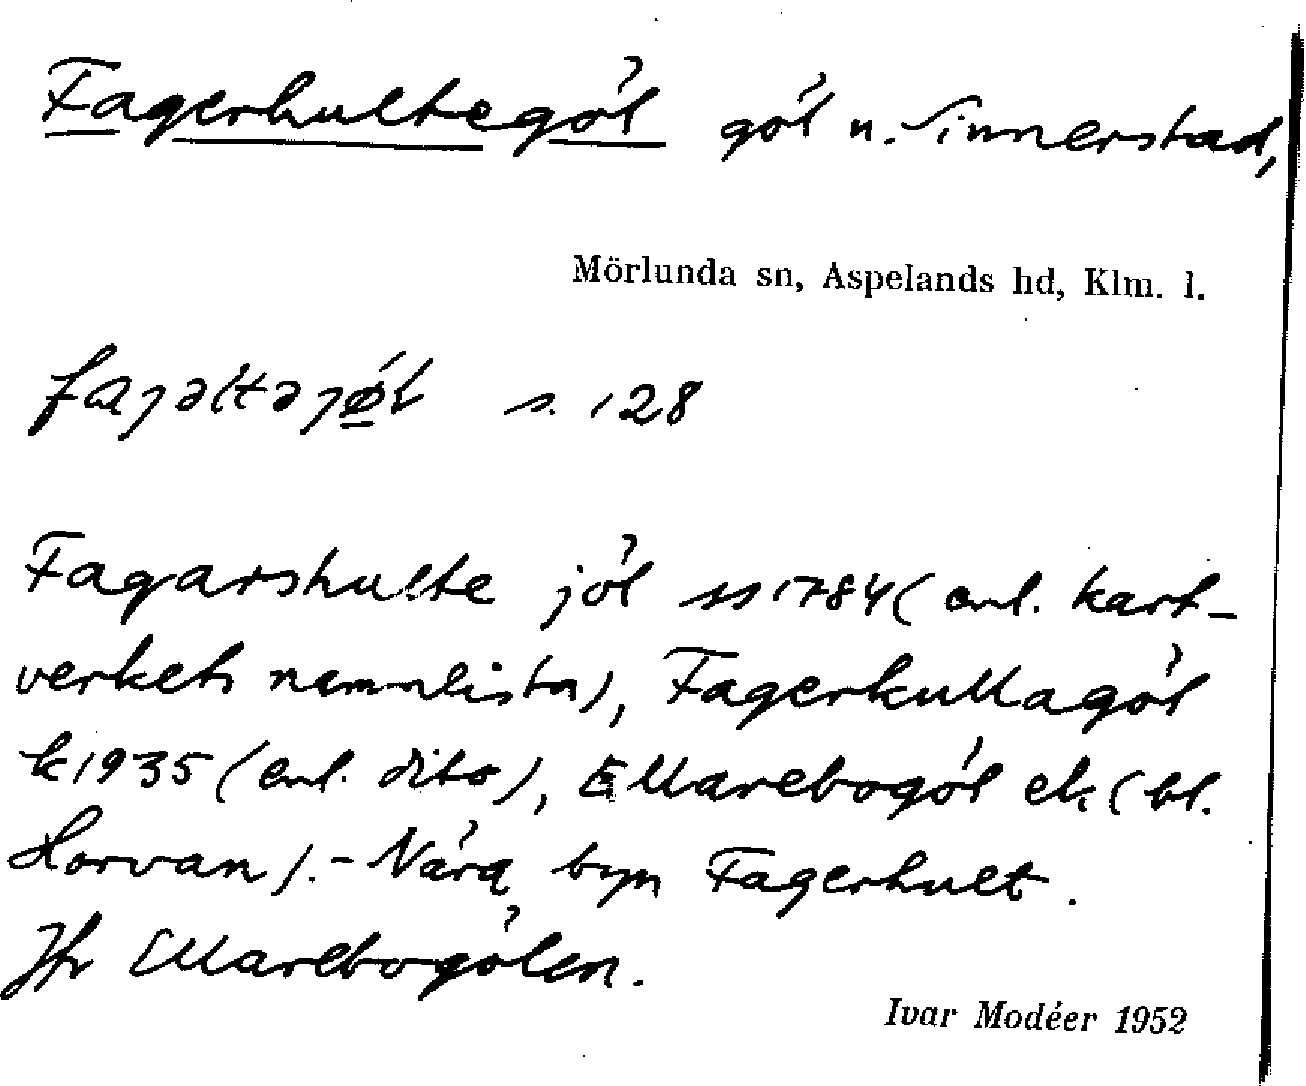 Fagerhultegöl göl n. Sinnerstad,
Mörlunda sn, Aspelands hd, Klm. l.
s. 128
Fagarshulte jöl ss 1784 (enl. kart-
verkets namnlista), Fagerkullagöl
k 1935 (enl. dito), Ellarebogöl ek (bl.
Horvan). - Nära byn Fagerhult.
Jfr Ellarebogölen.
Ivar Modéer 1952